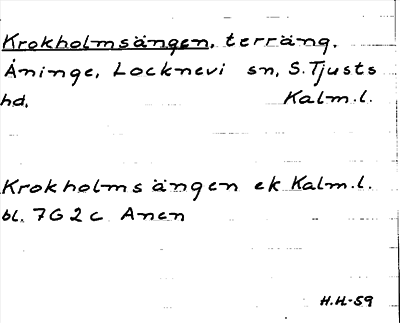 Krokholmsängen, terräng.
Åninge, Locknevi sn, S. Tjusts
hd. Kalm.l.
Krokholmsängen ek Kalm.l.
bl. 7G2c Anen
H.H-59